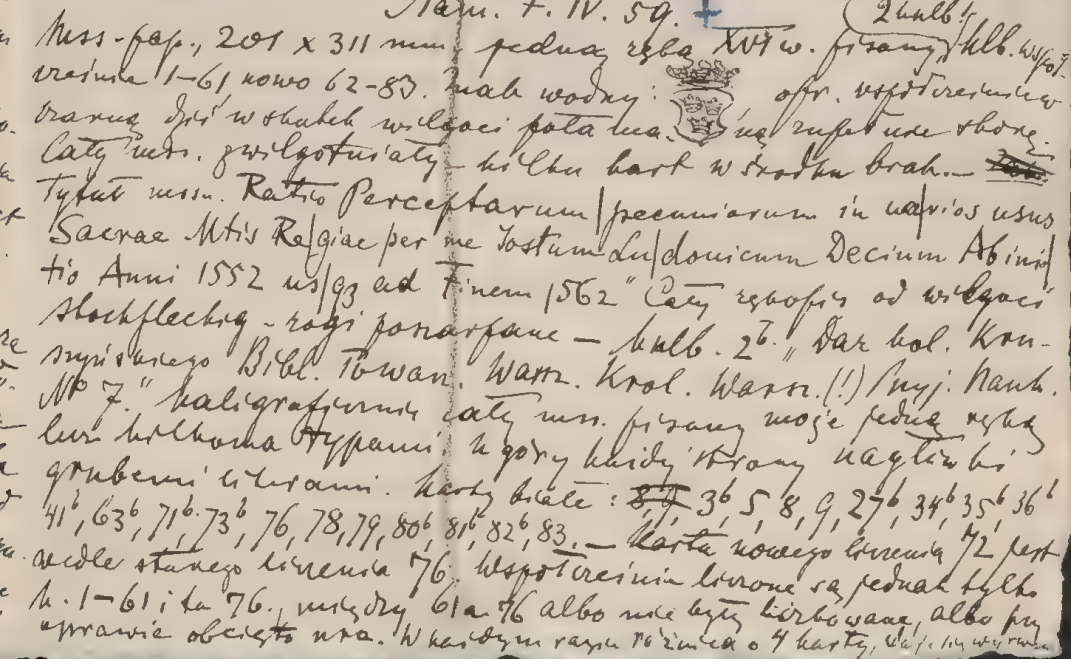 7. IV. 59. 2 knlb!
Mss-pap., 201 x 311 mm, jedną ręką XVI w. pisany klb. współ-
cześnie 1-61, nowo 62-83. Znak wodny: opr. współcześnie w
czarną dziś wskutek wilgoci połama. ną zupełnie skórę.
Cały mss. zwilgotniały - kilku kart w środku brak. -
Tytuł mss. Ratio Perceptarum | pecuniarum in varios usus
Sacrae Mtis Re|giae per me Iostum Lu|douicum Decium Ab ini|
tio Anni 1552 us|q3 ad Finem 1562" Cały rękopis od wilgoci
stockfleckig - rogi poszarpane - knlb. 2b. "Dar kol. Kru-
szyńskiego Bibl. Towarz. Warsz. Krol. Warsz. (!) Przyj. Nauk.
No 7." Kaligraficznie cały mss. pisany może jedną ręką
lecz kilkoma typami, u góry każdej strony nagłówki
grubemi literami. Karty białe: 3b, 5, 8, 9, 27b, 34b, 35b, 36b
41b, 63b, 71b, 73b, 76, 78, 79, 80b, 81b, 82b, 83. - Karta nowego liczenia 72 jest
wedle starego liczenia 76. Współcześnie liczone są jednak tylko
k. 1-61 i ta 76., między 61 a 76 albo nie były liczbowane, albo przy
oprawie obcięto nra. W każdym razie różnica o 4 karty,